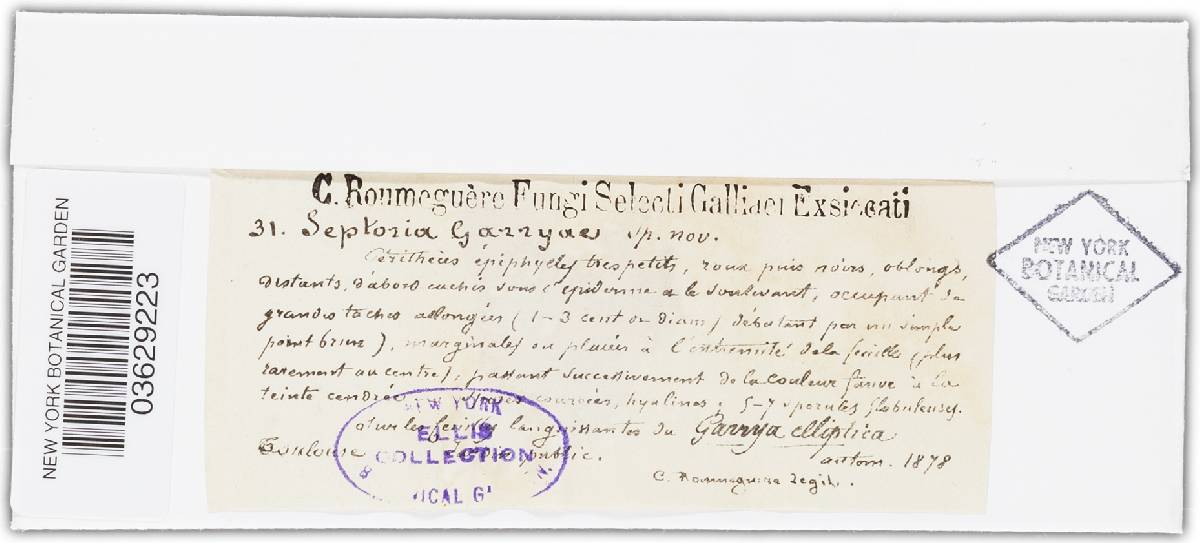 C. Roumeguère Fungi Selecti Galliaei Exsiccati
31. Septoria Garryae sp. nov.
Périthèces épiphylles très petits, roux puis noirs, oblongs,
distants, d'abord cachés sous l'épiderme & le soulevant, occupant de
grandes taches allongées (1-3 cent de diam) débutant par un simple
point brun), marginales ou placées à l'extrémité de la feuille (plus
rarement au centre), passant successivement de la couleur fauve à la
teinte cendrée. courbées, hyalines; 5-7 sporules globuleuses.
Sur les feuilles languissantes du Garrya elliptica
Toulouse public. autom. 1878
C. Roumeguère legit.
NEW YORK
ELLIS
COLLECTION
NEW YORK
BOTANICAL
GARDEN
NEW YORK BOTANICAL GARDEN
03629223